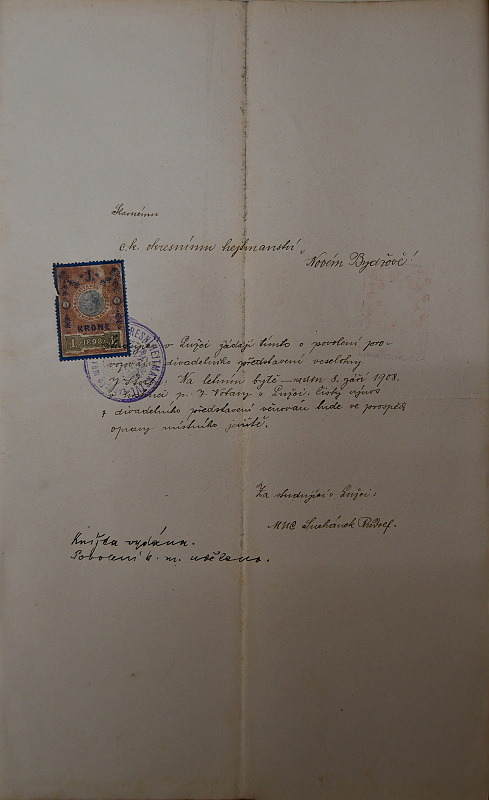 Slavnému
c.k. okresnímu hejtmanství
Novém Bydžově!
1
KRONE
1 1898
v Lužci žádají tímto o povolení pro-
divadelního představení veselohry
Na letním bytě – dne 8. září 1908.
p. J. v Lužci. Čistý výnos
z divadelního představení věnován bude ve prospěch
opravy místního jeviště.
Za studující v Lužci:
MUC Suchánek Rudolf.
Knížka vydána.
Povolení ú. m. uděleno.